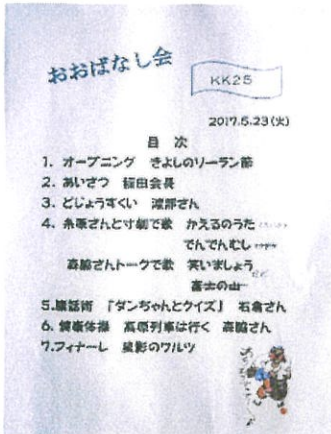 おおばなし会
KK25
2017.5.23(火)
目 次
1. オープニング きよしのソーラン節
2. あいさつ 稲田会長
3. どじょうすくい 渡部さん
4. 糸原さんと寸劇で歌 かえるのうた
でんでんむし
高脇さんトークで歌 笑いましょう
富士の山
5.腹話術 『ダンちゃんとクイズ』 石倉さん
6. 健康体操 高原列車は行く 高脇さん
7.フィナーレ 星影のワルツ